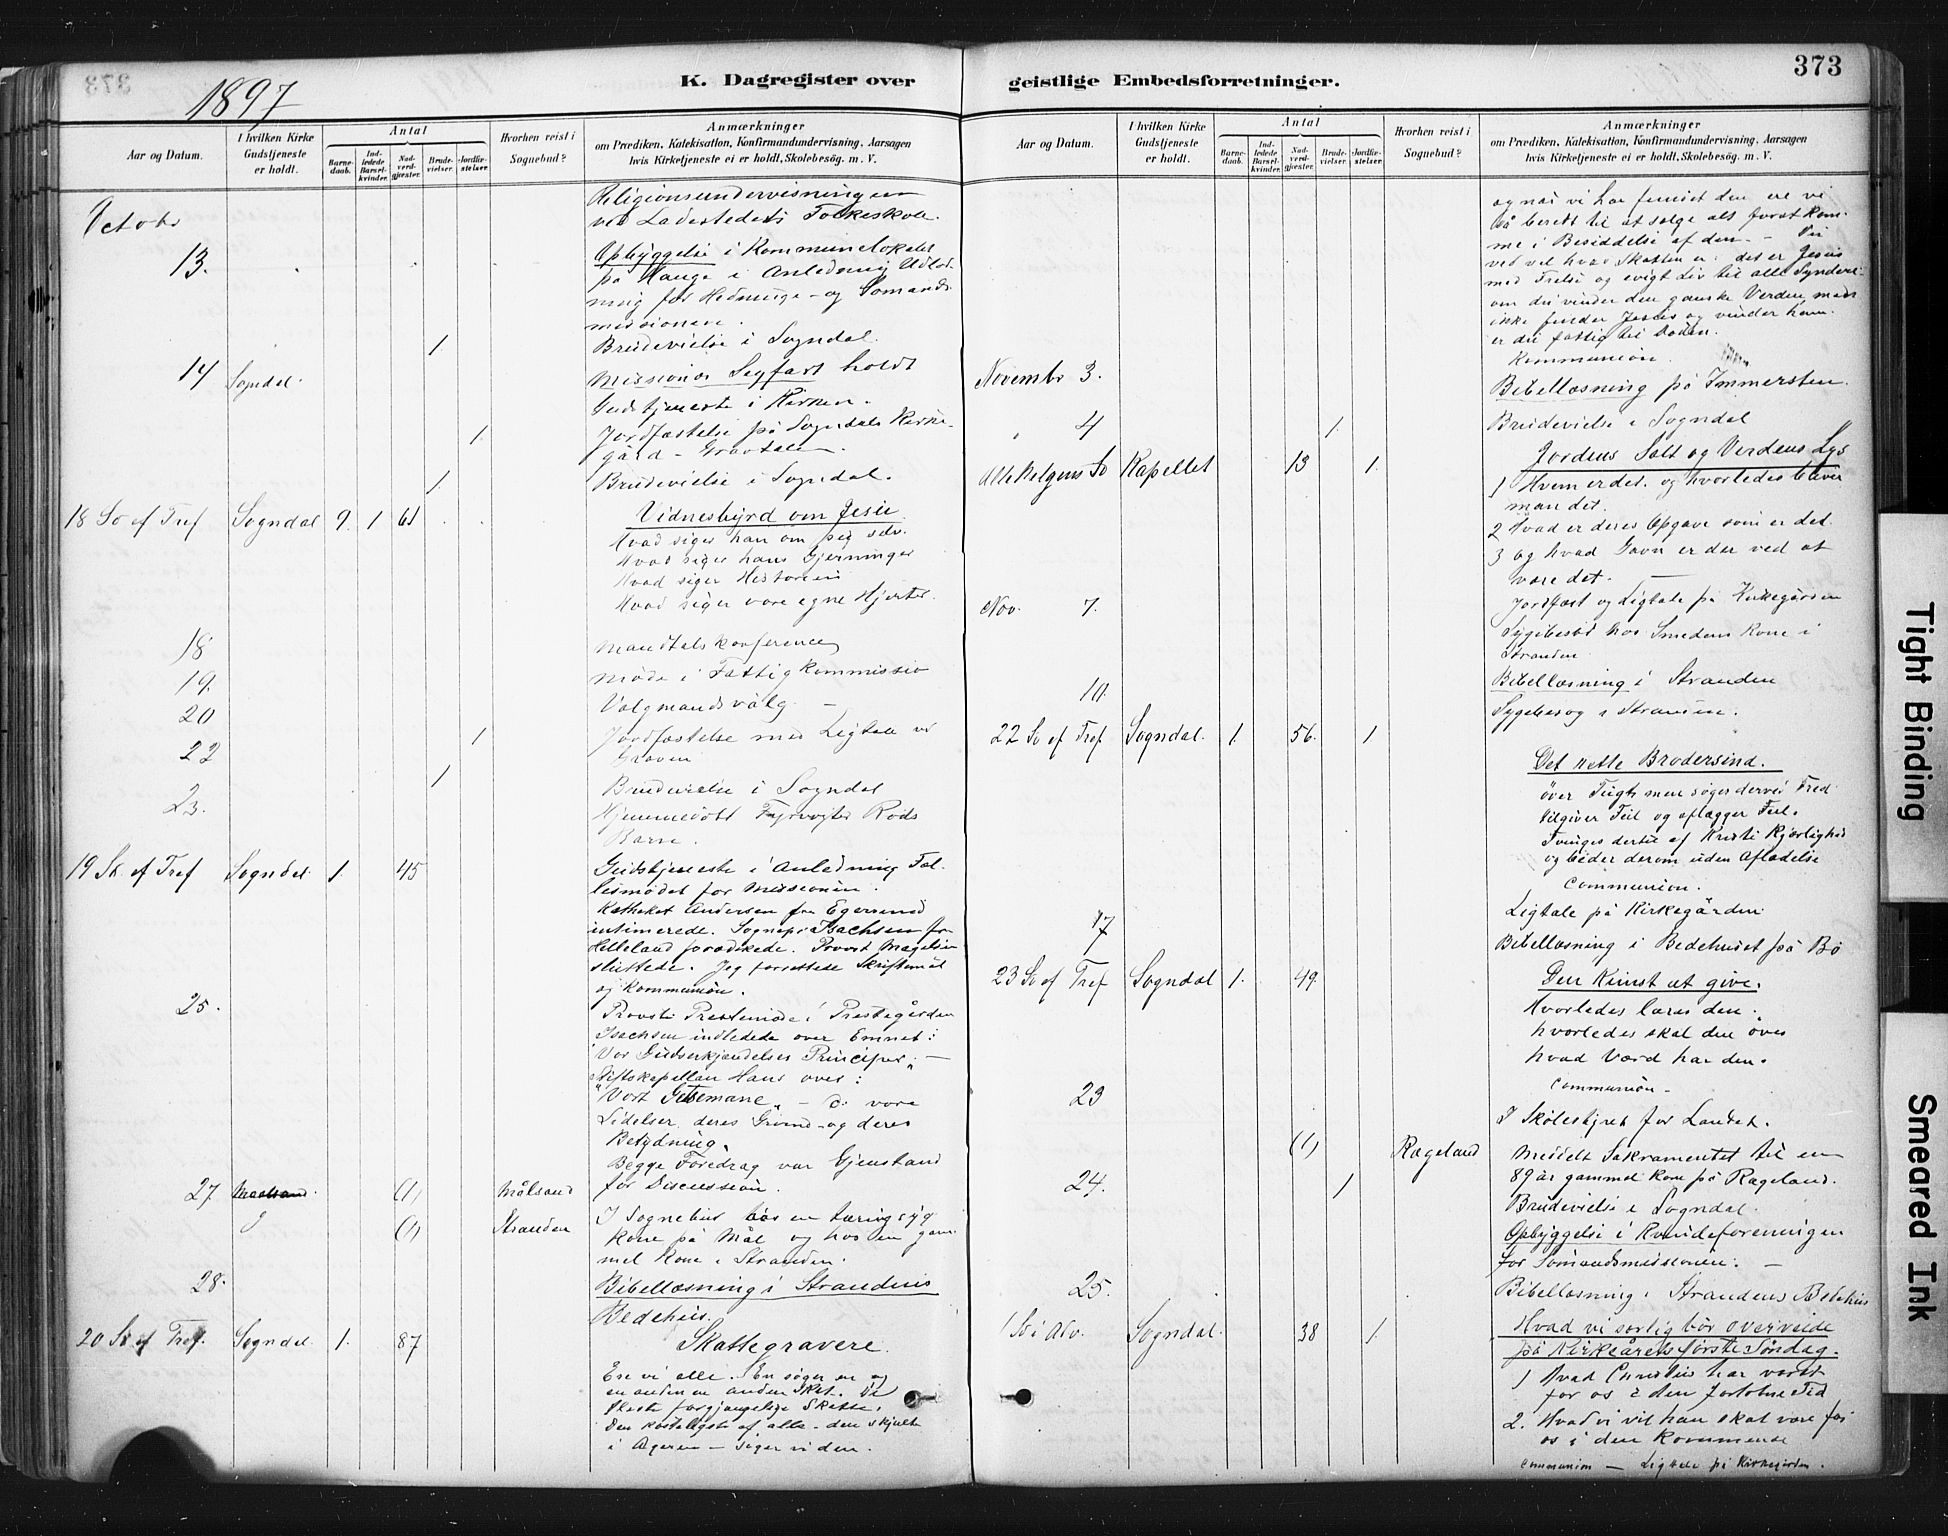 373
K. Dagregister over geistlige Embedsforretninger.
1897
Aar og Datum.
I hvilken Kirke Gudstjeneste er holdt.
Antal
Barnedaab.
Indledede Barselkvinder.
Nadverdgjester.
Brudevielser.
Jordfæstelser.
Hvorhen reist i Sognebud?
Anmærkninger
om Prædiken, Katekisation, Konfirmandundervisning, Aarsagen
hvis Kirketjeneste ei er holdt, Skolebesøg. m. V.
Octobr
Religionsundervisningen
ved Ladestedets Folkeskole.
13.
Opbyggelse i Kommunelokalet
på Hauge i Anledning Udlod-
ning for Hedninge- og Sømands-
missionen.
1
Brudevielse i Sogndal.
14 Sogndal.
Missionær Segfart holdt
Gudstjeneste i Kirken.
1
Jordfæstelse på Sogndals Kirke-
gård - Gravtalen.
1
Brudevielse i Sogndal.
18 Sø ef Tref Sogndal 9. 1 61
Vidnesbyrd om Jesu
Hvad siger han om sig selv.
Hvad siger hans Gjerninger
Hvad siger Historien
Hvad siger vore egne Hjerter.
18
Mandtalskonference
19.
Møde i Fattigkommissio
20
Valgmandsvalg -
22
1
Jordfæstelse med Ligtale ved
Graven
1
Brudevielse i Sogndal
23.
Hjemmedøbt Fyrvogter Røds
Barn.
19 Sø. ef Tref Sogndal. 1. 45
Gudstjeneste i Anledning Fæl-
lesmødet for Missionen.
Katheket Andersen fra Egersund
intimerede. Sognepr Isachsen fr
Helleland forædikede. Provst Magelsen
sluttede. Jeg forrettede Skriftemål
og Kommunion.
25.
Provsti Prestemøde i Prestegården
Isachsen indledede over Emnet:
"Vor Gudserkjendelses Principer" -
Stiftskapellan Hans over:
"Vort Getsemane" - d: vore
Lidelser deres Grund og deres
Betydning.
Begge Foredrag var Gjenstand
for Discussion.
27 Maalsand. (1) Målsand
(1) Stranden
I Sognebud hos en tæringsyg
Kone på Mål og hos en gam
mel Kone i Stranden.
28.
Bibellæsning i Strandens
Bedehus.
20 Sø ef Tref. Sogndal. 1. 87
Skattegravere.
Ere vi alle. En søger en og
en anden en anden Skat. De
fleste forgjængelige Skatte.
Den kosteligste af alle - den skjulte
i Ageren - søger vi den.
Aar og Datum.
I hvilken Kirke Gudstjeneste er holdt.
Antal
Barnedaab.
Indledede Barselkvinder.
Nadverdgjester.
Brudevielser.
Jordfæstelser.
Hvorhen reist i Sognebud?
Anmærkninger
om Prædiken, Katekisation, Konfirmandundervisning, Aarsagen
hvis Kirketjeneste ei er holdt, Skolebesøg. m. V.
og når vi har fundet den ere vi
så beredt til at sælge alt forat kom-
me i Besiddelse af den. - Vi
ved vel hvad Skatten er: det er Jesus
med Frelse og evigt Liv til alle Syndere
om du vinder den ganske Verden men
ikke finder Jesus og vinder ham
er du fattig til Døden.
Kommunion.
Novembr 3.
Bibellæsning på Immersten.
4
1
Brudevielse i Sogndal
Allehelgens Sø Kapellet 13 1.
Jordens Salt og Verdens Lys
1 Hvem er det. og hvorledes bliver
man det.
2 Hvad er deres Opgave som er det.
3 og hvad Gavn er der ved at
være det. -
Nov. 7.
Jordfæst og Ligtale på Kirkegården
Sygebesøg hos Smedens Kone i
Stranden
10.
Bibellæsning i Stranden
Sygebesøg i Stranden.
22 Sø ef Tref Sogndal. 1. 56. 1
Det rette Brodersind.
øver Tugt men søger derved Fred
tilgiver Feil og aflægger Feil.
Tvinges dertil af Kristi Kjærlighed
og beder derom uden Afladelse
Communion.
Ligtale på Kirkegården
17
Bibellæsning i Bedehuset på Bø
23 Sø ef Tref Sogndal 1. 49.
Den Kunst at give.
Hvorledes læres den.
hvorledes skal den øves
hvad Værd har den.
Communion -
23
I Skolestyret for Landet.
(1) Rægeland
Meddelt Sakramentet til en
89 år gammel Kone på Rægeland.
24.
1
Brudevielse i Sogndal.
Opbyggelse i Kvindeforeningen
for Sømandsmissionen. -
25.
Bibellæsning i Strandens Bedehus
1 Sø i Adv. Sogndal. 38 1.
Hvad vi særlig bør overveie
på Kirkeårets første Søndag.
1 Hvad Christus har været
for os i den forløbne Tid
2. Hvad vi vil han skal være for
os i den kommende
Communion - Ligtale på Kirkegården.
Tight Binding
Smeared Ink